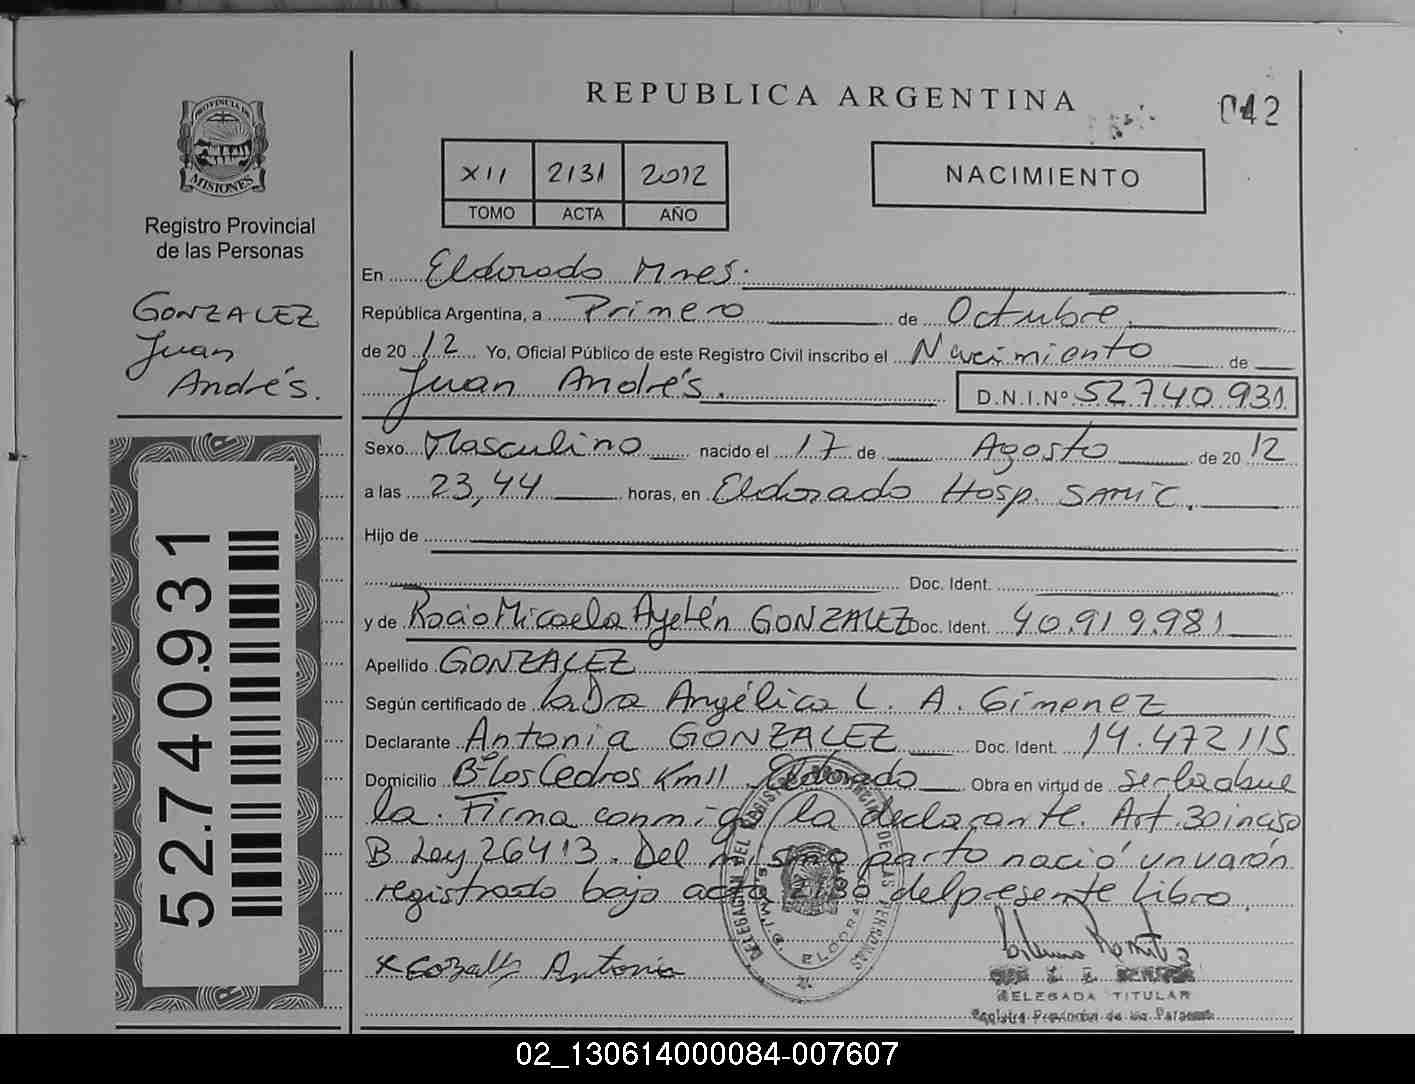 REPUBLICA ARGENTINA
042
PROVINCIA DE
MISIONES
Registro Provincial
de las Personas
GONZALEZ
Juan
Andrés.
52.740.931
XII 2131 2012
TOMO ACTA AÑO
NACIMIENTO
En Eldorado Mnes.
República Argentina, a Primero de Octubre
de 20 12 Yo, Oficial Público de este Registro Civil inscribo el Nacimiento de
Juan Andrés. D.N.I.Nº 52.740.931
Sexo Masculino nacido el 17 de Agosto de 20 12
a las 23,44 horas, en Eldorado Hosp. SAMIC.
Hijo de
Doc. Ident.
y de Rocio Micaela Ayelén GONZALEZ Doc. Ident. 40.919.981
Apellido GONZALEZ
Según certificado de la Dra Angélica L. A. Gimenez
Declarante Antonia GONZALEZ Doc. Ident. 14.472 115
Domicilio Bº Los Cedros Km 11. Eldorado Obra en virtud de ser la abue
la. Firma conmigo la declarante. Art. 30 inciso
B Ley 26413. Del mismo parto nació un varón
registrado bajo acta 2130 del presente Libro.
x Antonia
DELEGADA TITULAR
Registro Provincial de las Personas
02_130614000084-007607